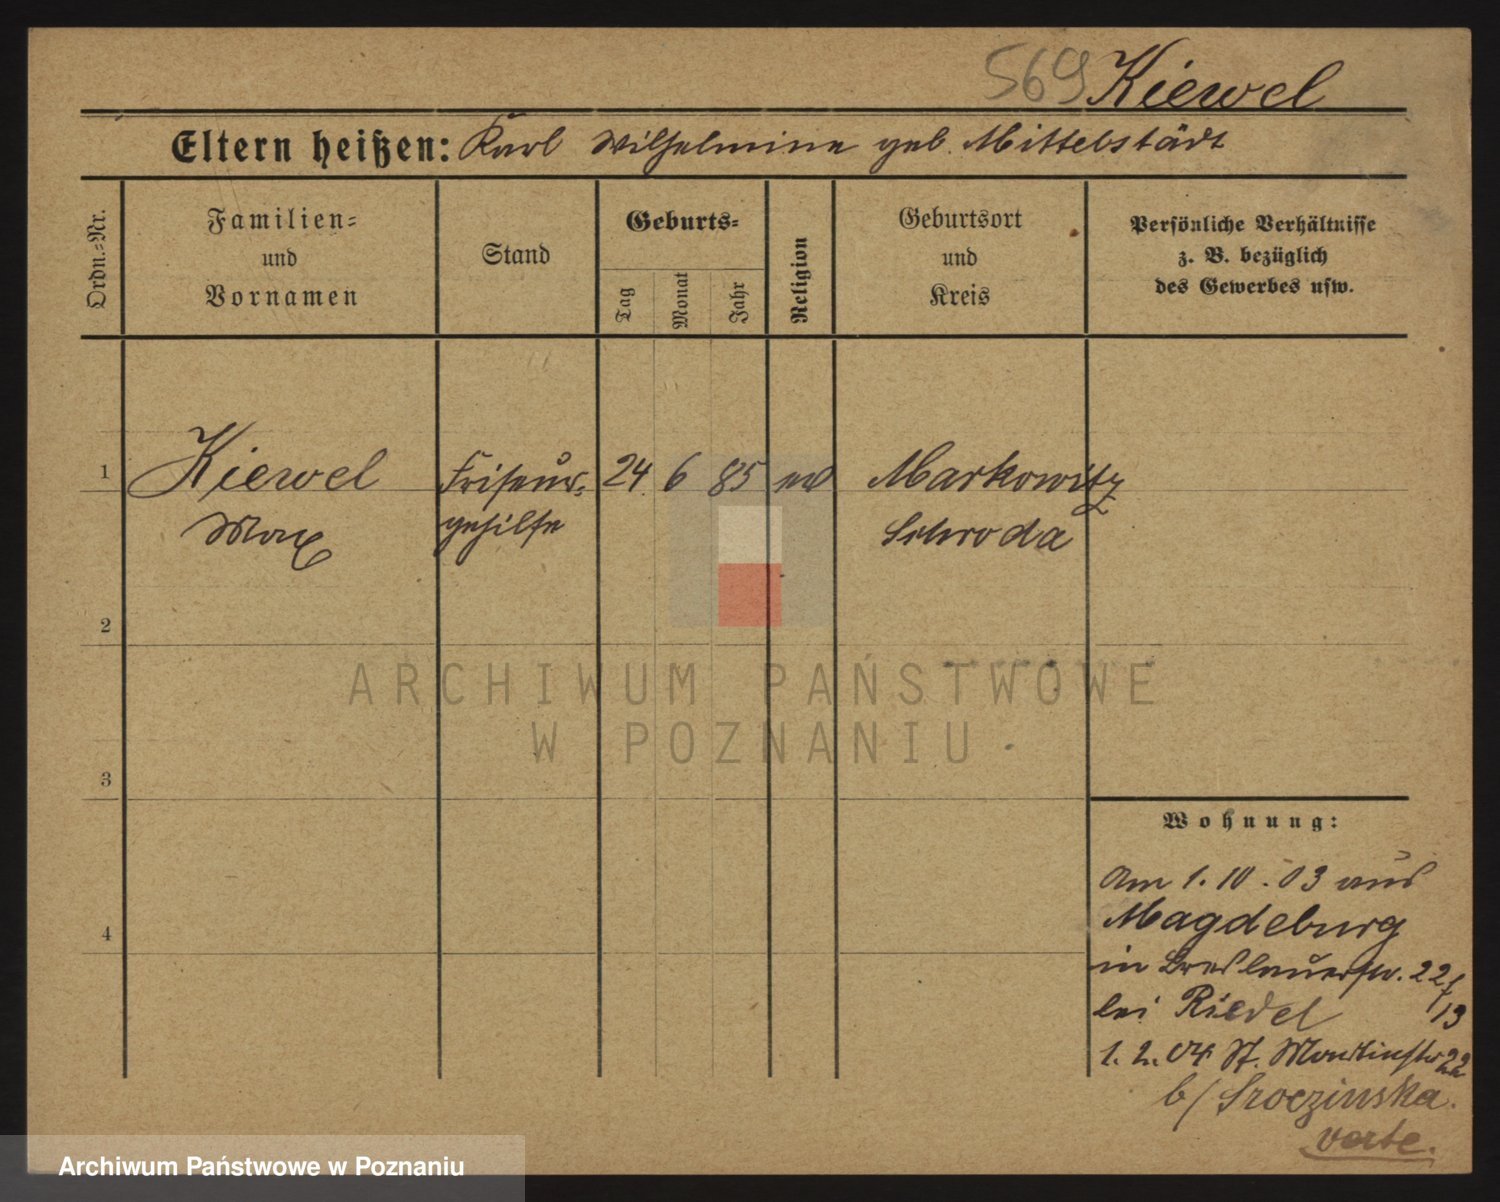 569 Kiewel
Eltern heißen: Karl Wilhelmine geb. Mittelstädt
Ordn.-Nr.
Familien-
und
Vornamen
Stand
Geburts-
Tag
Monat
Jahr
Religion
Geburtsort
und
Kreis
Persönliche Verhältnisse
z. B. bezüglich
des Gewerbes usw.
1 Kiewel Friseur- 24 6 85 ev Markowitz
Max gehilfe Schroda
2
ARCHIWUM PAŃSTWOWE
W POZNANIU
3
Wohnung:
Am 1.10.03 aus
Magdeburg
4
in Breslauerstr. 22
bei Riedel 13
1.2.04 St. Martinstr 22
b/ Sroczinska.
verte.
Archiwum Państwowe w Poznaniu